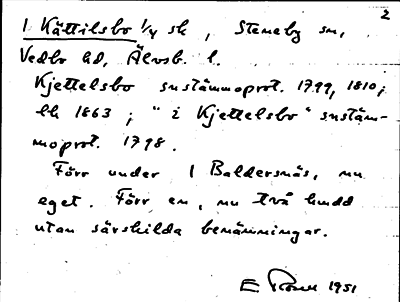 2
1 Kättilsbo 1/4 sk, Steneby sn,
Vedbo hd, Älvsb. l.
Kjettelsbo sustämmoprot. 1799, 1810;
hh 1863; "i Kjettelsbo" sustäm-
moprot. 1798.
Förr under 1 Baldersnäs, nu
eget. Förr en, nu två
utan särskilda benämningar.
E 1951